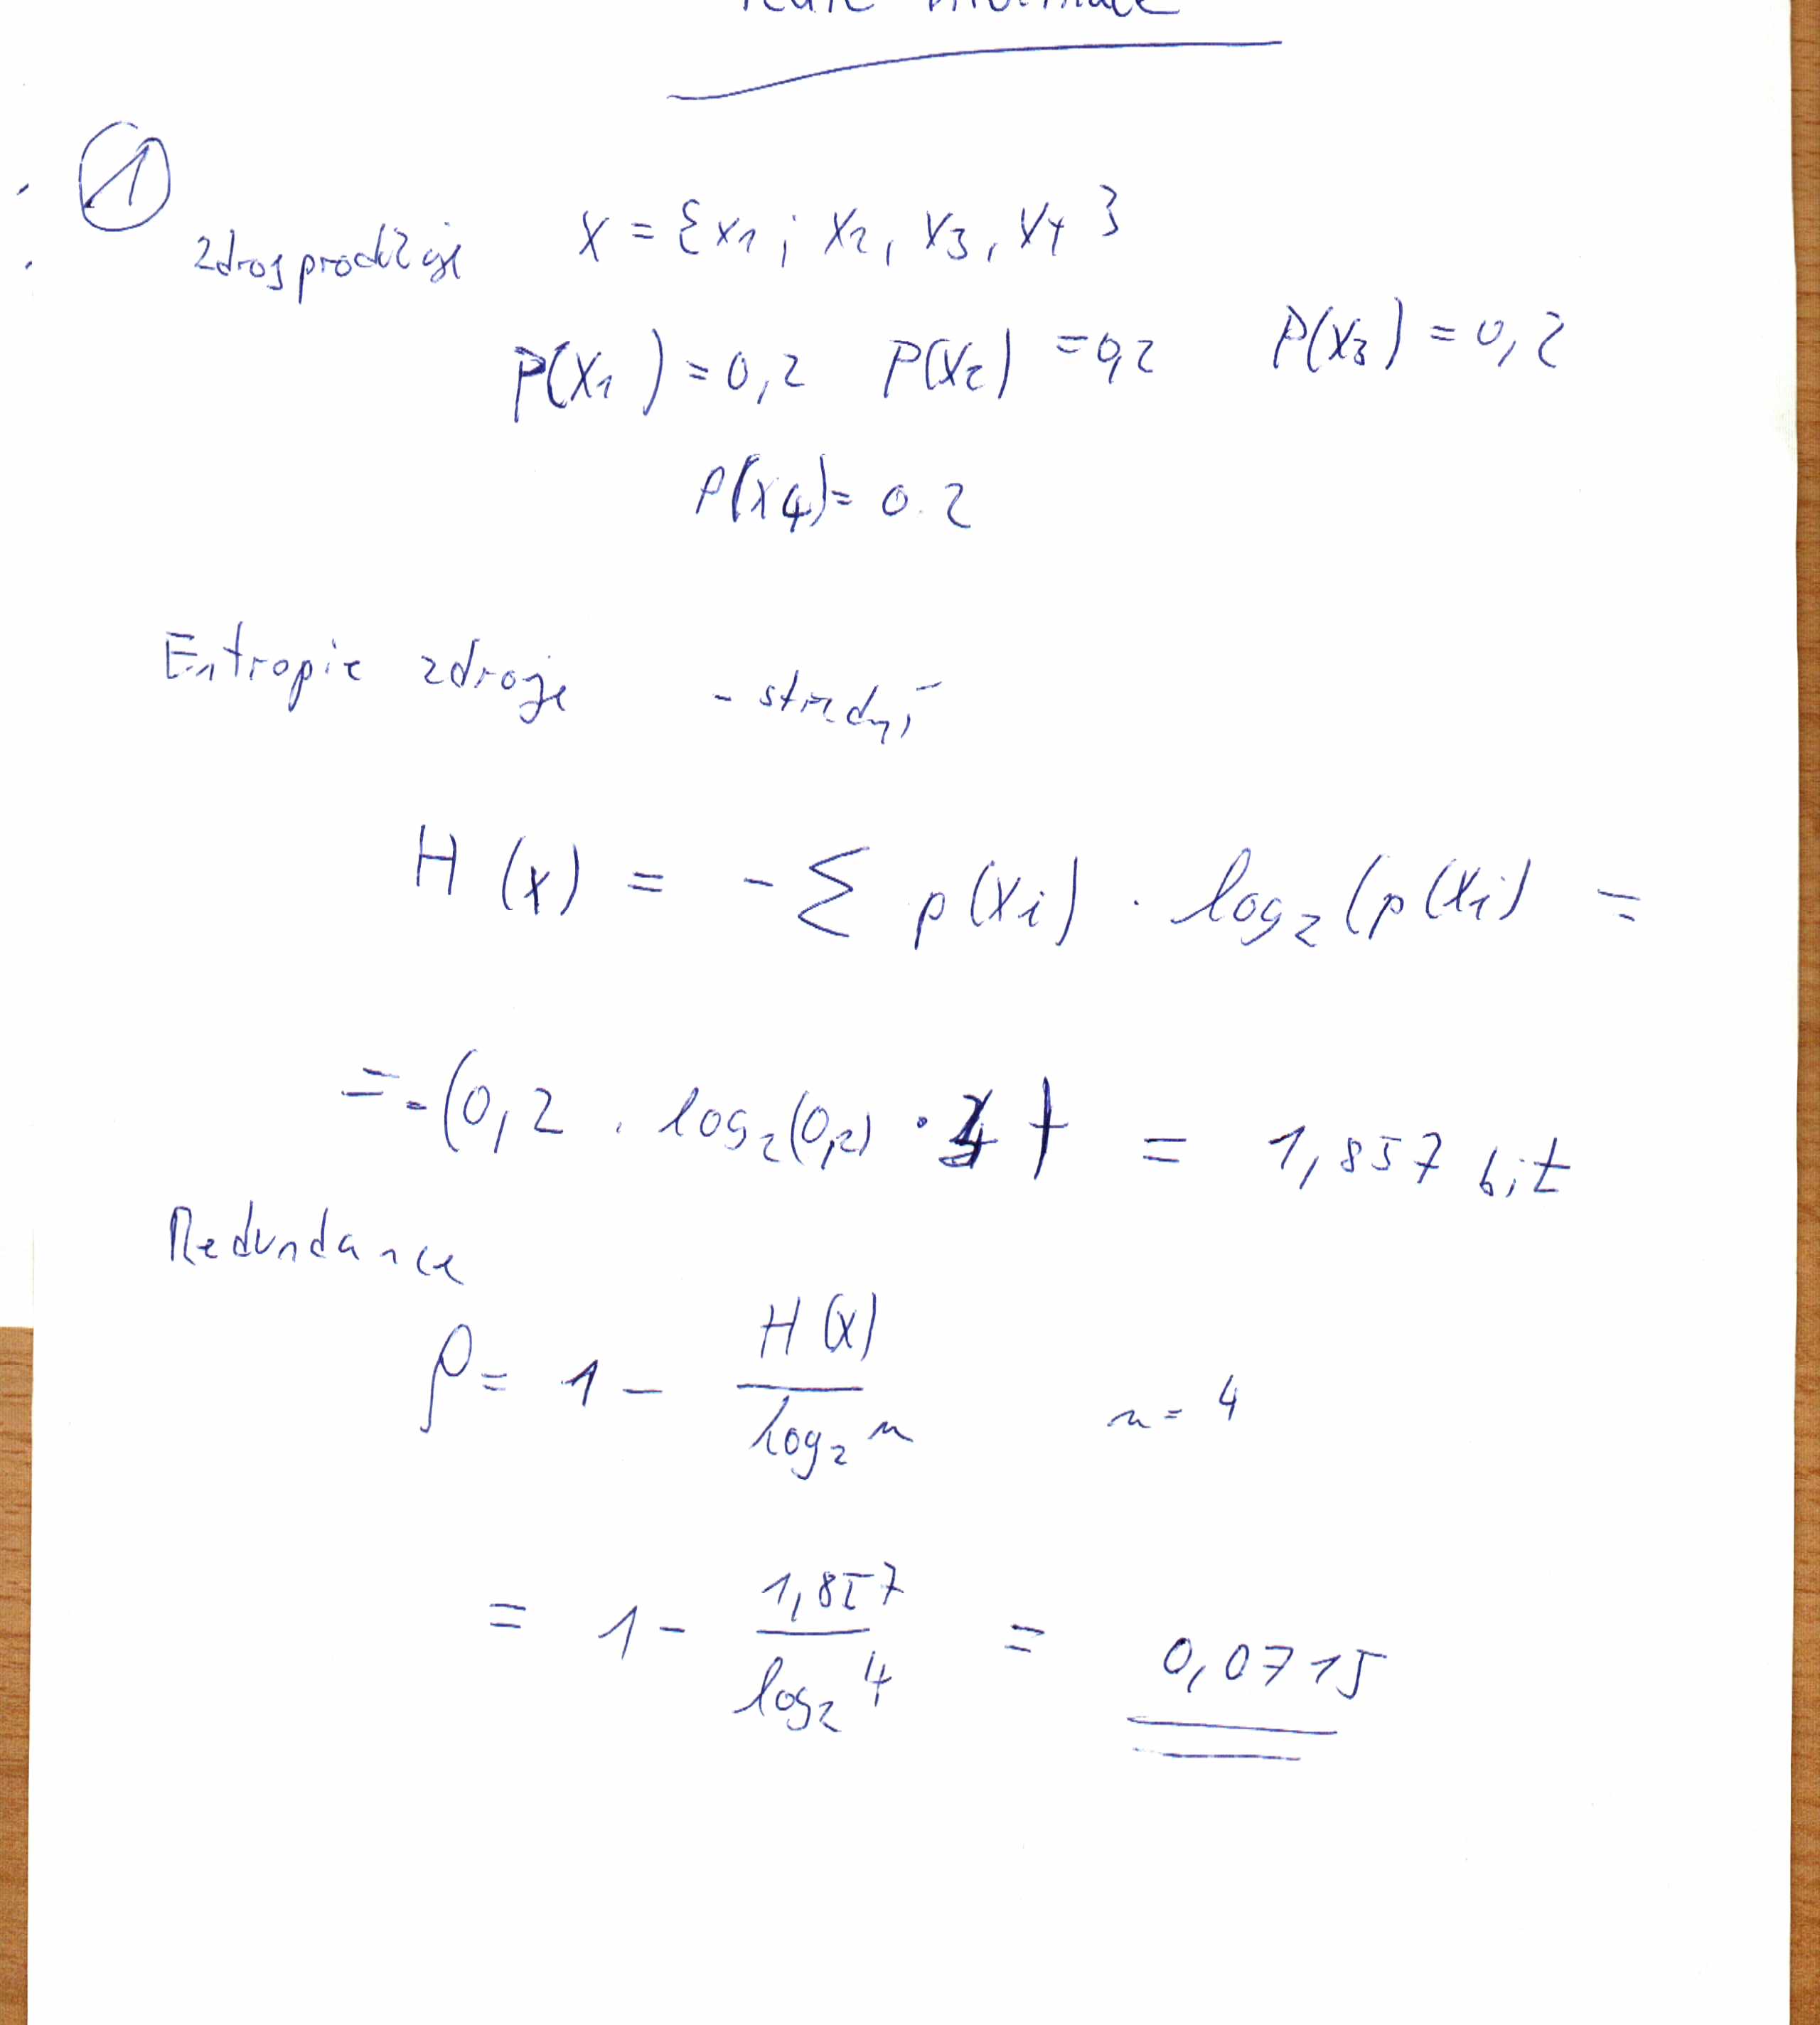 1
zdroj produkuje X = {x1; x2, x3, x4}
P(x1) = 0,2 P(x2) = 0,2 P(x3) = 0,2
P(x4) = 0.2
Entropie zdroje - střední
H(x) = - Σ p(xi) · log2(p(xi) =
= -(0,2 · log2(0,2) · 4) = 1,857 bit
Redundance
ρ = 1 - H(x) / log2 n n = 4
= 1 - 1,857 / log2 4 = 0,0715